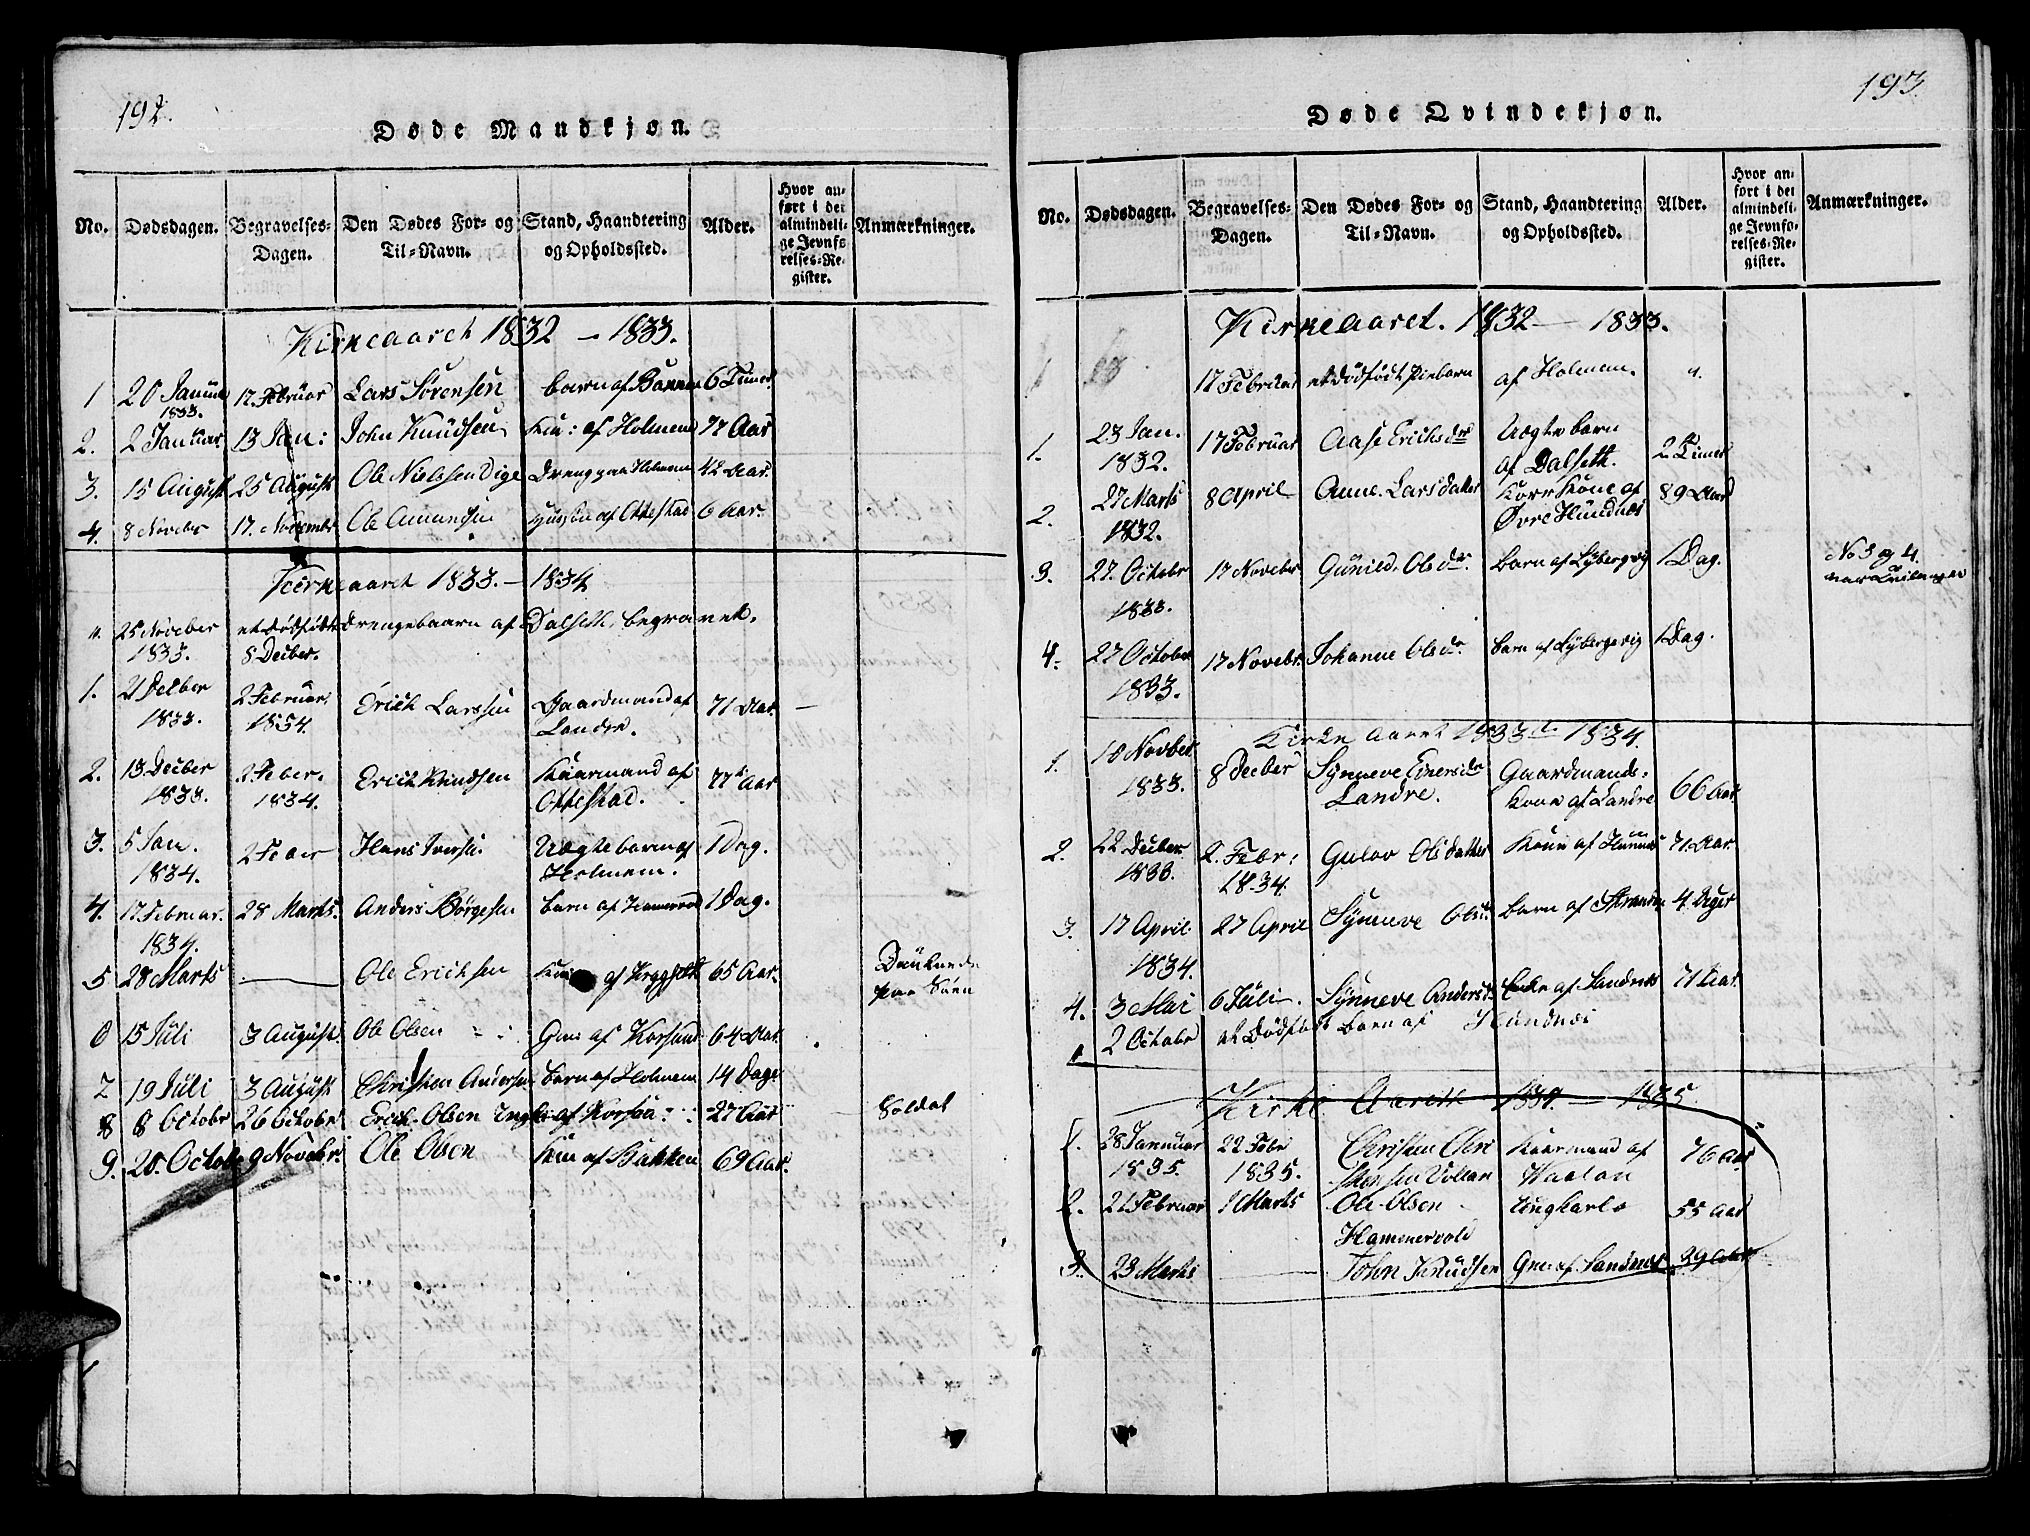 192.
Døde Mandkjøn.
No. Dødsdagen. Begravelses-Dagen. Den Dødes For- og Til-Navn. Stand, Haandtering og Opholdssted. Alder. Hvor anført i det almindelige Jevnførelses-Register. Anmærkninger.
Kirkeaaret 1832 — 1833.
1 20 Januar 1833. 17. Februar Lars Sörensen barn af Bakken 6 Timer
2. 2 Januar 13 Jan: John Knudsen Kin: af Holmem 77 Aar
3. 15 August 25 August Ole Nielssen Dige Dreng paa Holmem 12 Aar.
4. 8 Novebr 17. Novembr Ole Amundsen af Ottestad 6 Aar.
Kirkeaaret 1833. — 1834
" 25 Noveber 1833. et dødfødt Drengebaarn af Dalseth, begravet.
8 Decber.
1. 2 Decber 1833. 2 Februar. 1834. Erich Larssen Gaardmand af Landre. 71 Aar. —
2. 13 Decber 1833. 2. Feber. 1834. Erich Knudsen Kaarmand af Ottestad. 77 Aar
3. 5 Jan. 1834. 2 Feber Hans Iversen Uægte barn af Holmem. 1 Dag.
4. 17. Februar. 1834. 28 Marts. Anders Börgesen barn af 1 Dag.
5 28 Marts — Ole Erichsen af 65 Aar. Druknede paa Søen
6 15 Juli 3 August. Ole Olsen Gm: af Korsund 64 Aar
7 19 Juli 3 August Christen Andersen barn af Holmem 14 Dage
8 8 Octobr 26 Octobr Erich Olsen Ungk: af Korsaa 27 Aar Soldat
9. 20. October 9 Novebr. Ole Olsen Kin af Bakken 69 Aar.
193.
Døde Qvindekjøn.
No. Dødsdagen. Begravelses-Dagen. Den Dødes For- og Til-Navn. Stand, Haandtering og Opholdssted. Alder. Hvor anført i det almindelige Jevnførelses-Register. Anmærkninger.
Kirkeaaret. 1832 — 1833.
17 Februar et dödfödt Piebarn af Holmem. "
1. 23 Jan. 1832. 17 Februar Aase Erichsdr Uægte barn af Dalseth. 2 Timer
2. 27 Marts 1832. 8 April Anne Larsdatter Kaarkone af Øvre Hundnæs 89 Aar
3. 27. Octobr 1833. 17 Novebr Gunild. Olsdr. Barn af Lybergvig 1 Dag. No 3 og 4 var
4. 27 October 1833. 17 Novebr. Johanne Olsdr. Barn af Lybergvig 1 Dag.
Kirke Aaret 1833 til 1834.
1. 18 Novber 1833. 8 Decber Synneve Landre. Gaardmands-Kone af Landre 66 Aar.
2. 22 Decber 1833. 2. Febr: 1834. Gulov Olsdatter Kone af 71 Aar.
3. 17 April 1834. 27 April Synneve Olsdr. barn af Stranden 4 Dager
4. 3 Mai 6 Juli. Synneve Andersdr Enke af Sandnes 71 Aar.
2 Octobr et Dödfödt Barn af Hundnæs
Kirke Aaret 1834. — 1835.
1. 28 Januar 1835. 22 Febr 1835. Christen Christensen Vollan Kaarmand af Haalan 76 Aar
2. 21 Februar 1 Marts Ole Olsen Hammervold Ungkarl 55 Aar
3. 23 Marts — John Knudsen Gm af Sandnes 39 Aar